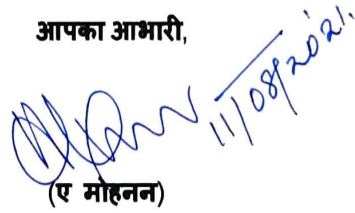 आपका आभारी,
11/08/2021.
(ए मोहनन)